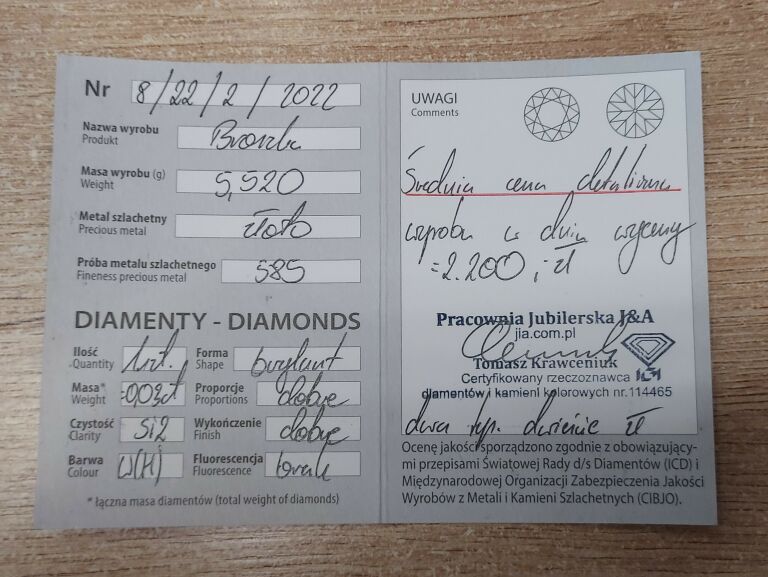 Nr 8/22/2/2022
Nazwa wyrobu Broszka
Produkt
Masa wyrobu (g) 5,920
Weight
Metal szlachetny złoto
Precious metal
Próba metalu szlachetnego 585
Fineness precious metal
DIAMENTY - DIAMONDS
Ilość 1szt. Forma brylant
Quantity Shape
Masa* =0,03ct Proporcje dobre
Weight Proportions
Czystość Si2 Wykończenie dobre
Clarity Finish
Barwa W(H) Fluorescencja brak
Colour Fluorescence
* łączna masa diamentów (total weight of diamonds)
UWAGI
Comments
Średnia cena detaliczna
wyrobu w dniu wyceny
=2.200,- zł
Pracownia Jubilerska J&A
jia.com.pl
Tomasz Krawceniuk
Certyfikowany rzeczoznawca
diamentów i kamieni kolorowych nr.114465
dwa tys. dwieście zł
Ocenę jakości sporządzono zgodnie z obowiązujący-
mi przepisami Światowej Rady d/s Diamentów (ICD) i
Międzynarodowej Organizacji Zabezpieczenia Jakości
Wyrobów z Metali i Kamieni Szlachetnych (CIBJO).